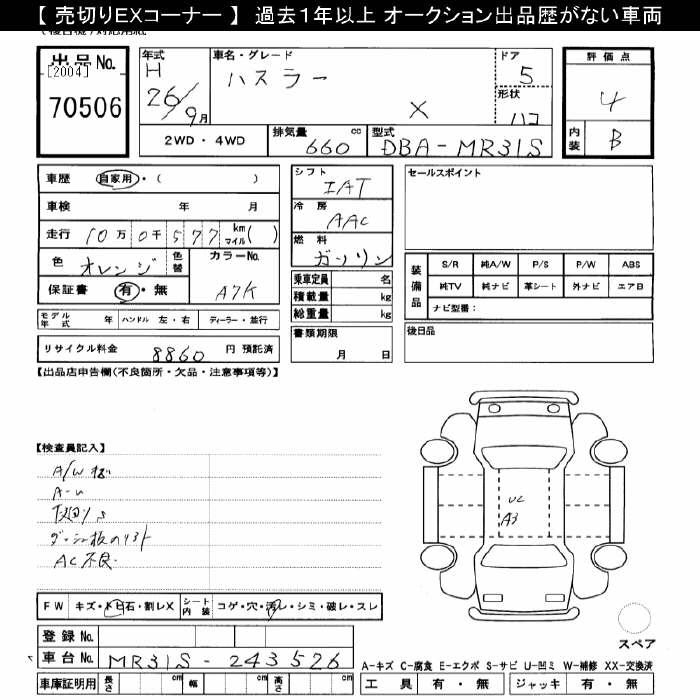 【 売切りEXコーナー 】 過去1年以上 オークション出品歴がない車両
出品 No.
[2004]
70506
年式
H
26/9月
車名・グレード
ハスラー
X
ドア
5
形状
ハコ
評価点
4
内装
B
2WD・4WD
排気量
660
cc
型式
DBA-MR31S
車歴
自家用・( )
車検 年 月
走行 10万0千577 km マイル( )
色
オレンジ
色替
カラーNo.
A7K
保証書 有・無
モデル年式 年 ハンドル 左・右 ディーラー・並行
リサイクル料金 8860 円 預託済
シフト
IAT
冷房
AAC
燃料
ガソリン
乗車定員 名
積載量 kg
総重量 kg
書類期限
月 日
セールスポイント
装備品
S/R 純A/W P/S P/W ABS
純TV 純ナビ 革シート 外ナビ エアB
ナビ型番:
後日品
【出品店申告欄(不良箇所・欠品・注意事項等)】
【検査員記入】
A/W
A-U
ダッシュ板のリフト
AC不良
UC
A3
FW キズ・トビ石・割レX シート内装 コゲ・穴・汚レ・シミ・破レ・スレ
登録 No.
車台 No. MR31S-243526
車庫証明用 長さ cm 幅 cm 高さ cm
スペア
A-キズ C-腐食 E-エクボ S-サビ U-凹ミ W-補修 XX-交換済
工具 有・無 ジャッキ 有・無